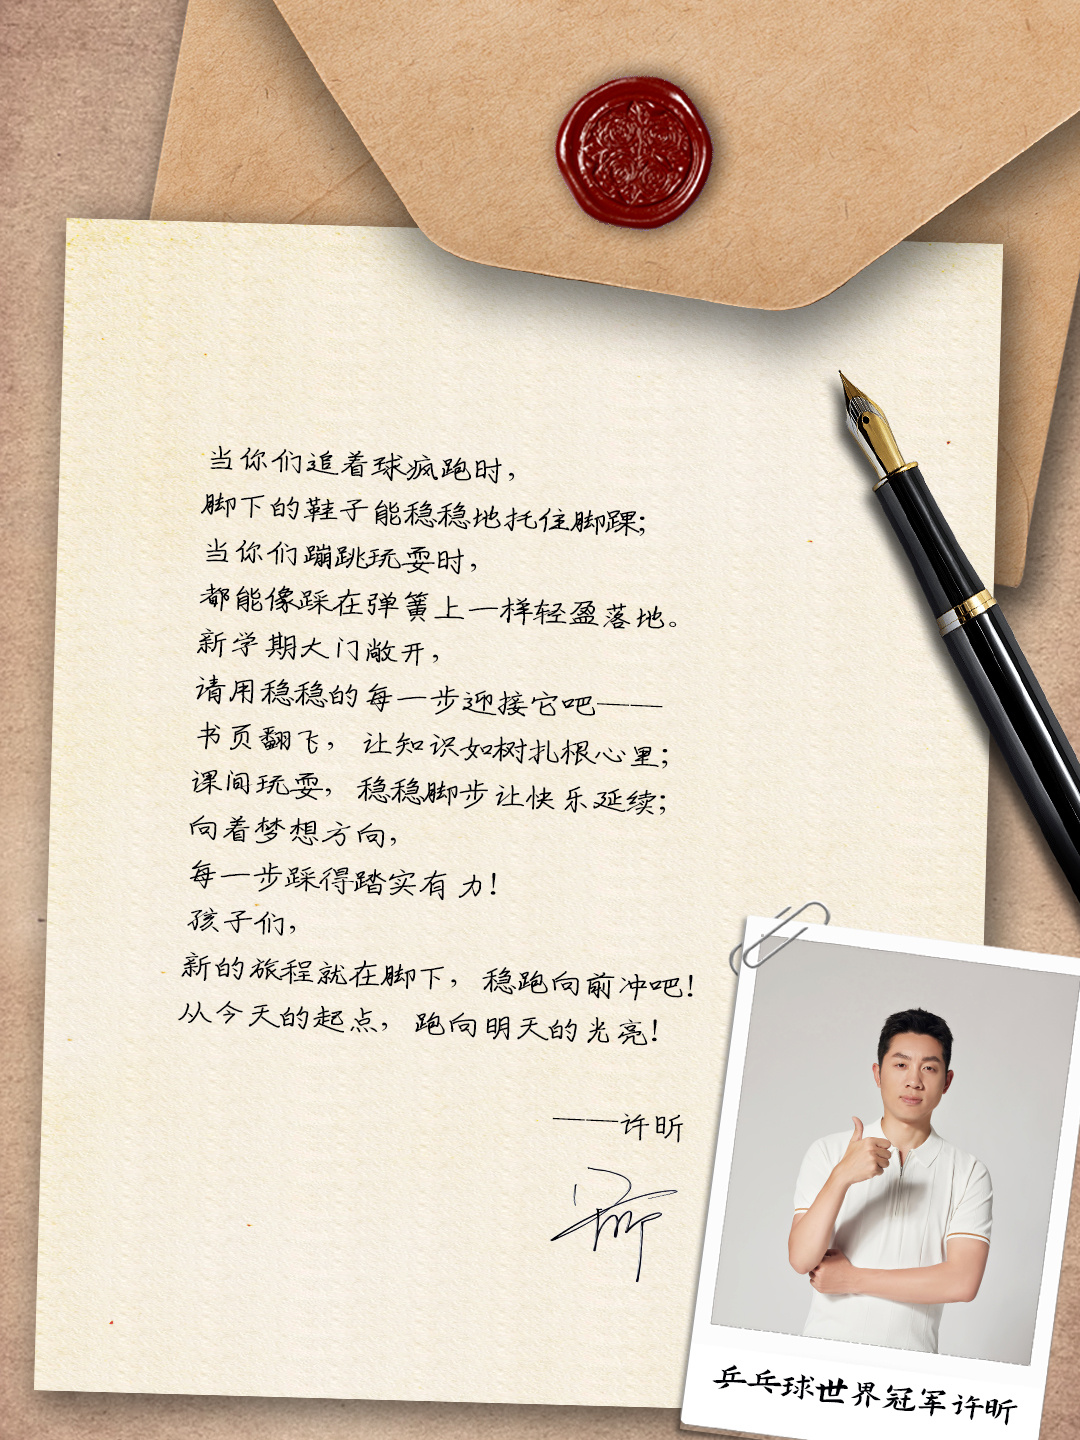 当你们追着球疯跑时，
脚下的鞋子能稳稳地托住脚踝；
当你们蹦跳玩耍时，
都能像踩在弹簧上一样轻盈落地。
新学期大门敞开，
请用稳稳的每一步迎接它吧——
书页翻飞，让知识如树扎根心里；
课间玩耍，稳稳脚步让快乐延续；
向着梦想方向，
每一步踩得踏实有力！
孩子们，
新的旅程就在脚下，稳跑向前冲吧！
从今天的起点，跑向明天的光亮！
——许昕
许昕
乒乓球世界冠军许昕